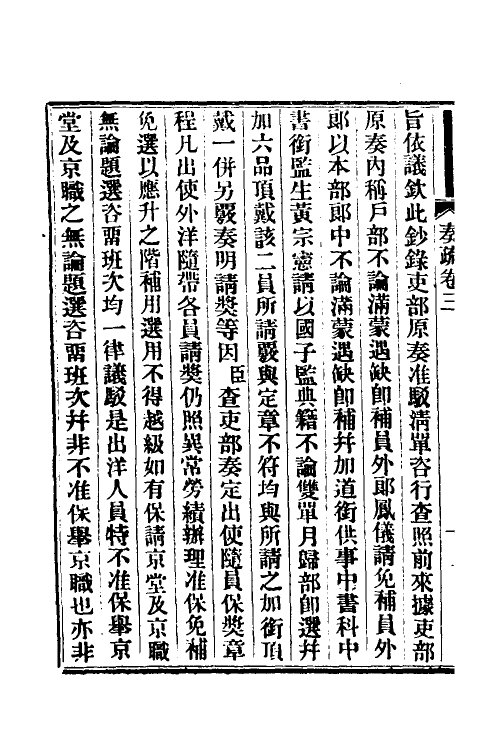 奏疏卷三
旨依議欽此鈔錄吏部原奏准駁清單咨行查照前來據吏部
原奏內稱戶部不論滿蒙遇缺卽補員外郎鳳儀請免補員外
郎以本部郎中不論滿蒙遇缺卽補幷加道銜供事中書科中
書銜監生黃宗憲請以國子監典籍不論雙單月歸部卽選幷
加六品頂戴該二員所請覈與定章不符均與所請之加銜頂
戴一併另覈奏明請獎等因臣查吏部奏定出使隨員保獎章
程凡出使外洋隨帶各員請獎仍照異常勞績辦理准保免補
免選以應升之階補用選用不得越級如有保請京堂及京職
無論題選咨畱班次均一律議駁是出洋人員特不准保舉京
堂及京職之無論題選咨畱班次幷非不准保舉京職也亦非